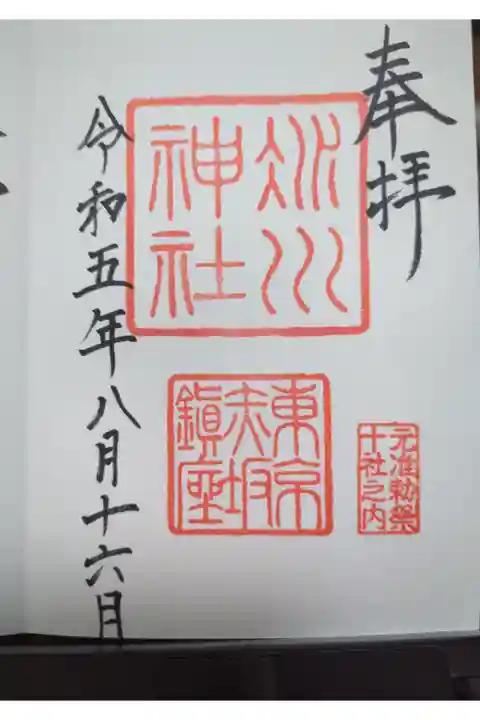 奉拝
冰川
神社
東京
赤坂
鎭座
元准勅祭
十社之内
令和五年八月十六日